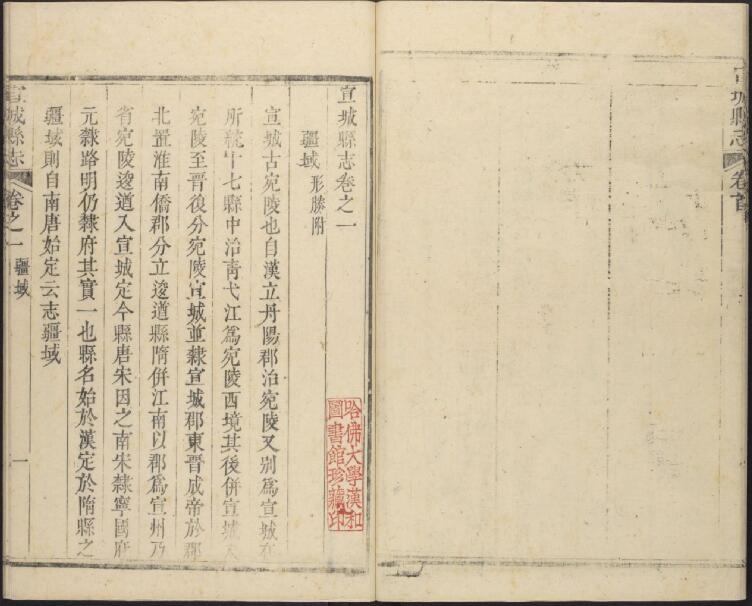 宣城縣志
卷首
宣城縣志卷之一
疆域 形勝附
宣城古宛陵也自漢立丹陽郡治宛陵又別爲宣城在
所統十七縣中治靑弋江爲宛陵西境其後併宣城入
宛陵至晉後分宛陵宣城並隸宣城郡東晉成帝於郡
北置淮南僑郡分立逡道縣隋併江南以郡爲宣州乃
省宛陵逡道入宣城定今縣唐宋因之南宋隸寧國府
元隸路明仍隸府其實一也縣名始於漢定於隋縣之
疆域則自南唐始定云志疆域
宣城縣志
卷之一
疆域
一
哈佛大學漢和
圖書館珍藏印